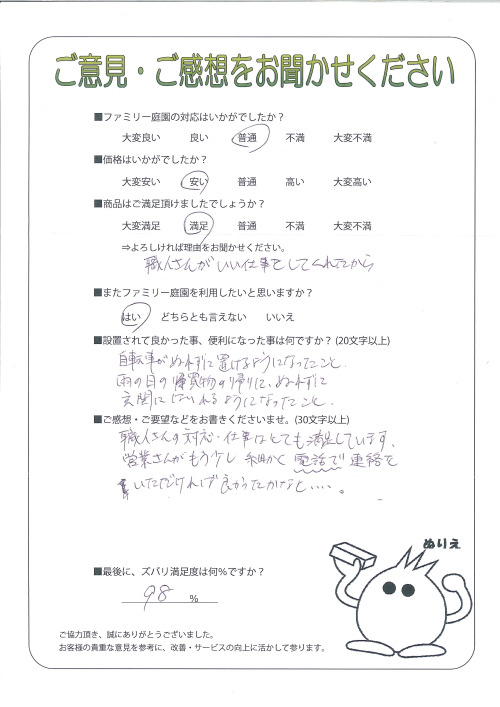 ご意見・ご感想をお聞かせください
■ファミリー庭園の対応はいかがでしたか？
大変良い 良い 普通 不満 大変不満
■価格はいかがでしたか？
大変安い 安い 普通 高い 大変高い
■商品はご満足頂けましたでしょうか？
大変満足 満足 普通 不満 大変不満
⇒よろしければ理由をお聞かせください。
職人さんがいい仕事をしてくれたから
■またファミリー庭園を利用したいと思いますか？
はい どちらとも言えない いいえ
■設置されて良かった事、便利になった事は何ですか？(20文字以上)
自転車がぬれずに置けるようになったこと。
雨の日の買物の帰りに、ぬれずに
玄関にはいれるようになったこと。
■ご感想・ご要望などをお書きくださいませ。(30文字以上)
職人さんの対応・仕事はとても満足しています。
営業さんがもう少し細かく電話で連絡を
いただければ良かったかなと・・・・。
■最後に、ズバリ満足度は何%ですか？
98 %
ぬりえ
ご協力頂き、誠にありがとうございました。
お客様の貴重な意見を参考に、改善・サービスの向上に活かして参ります。